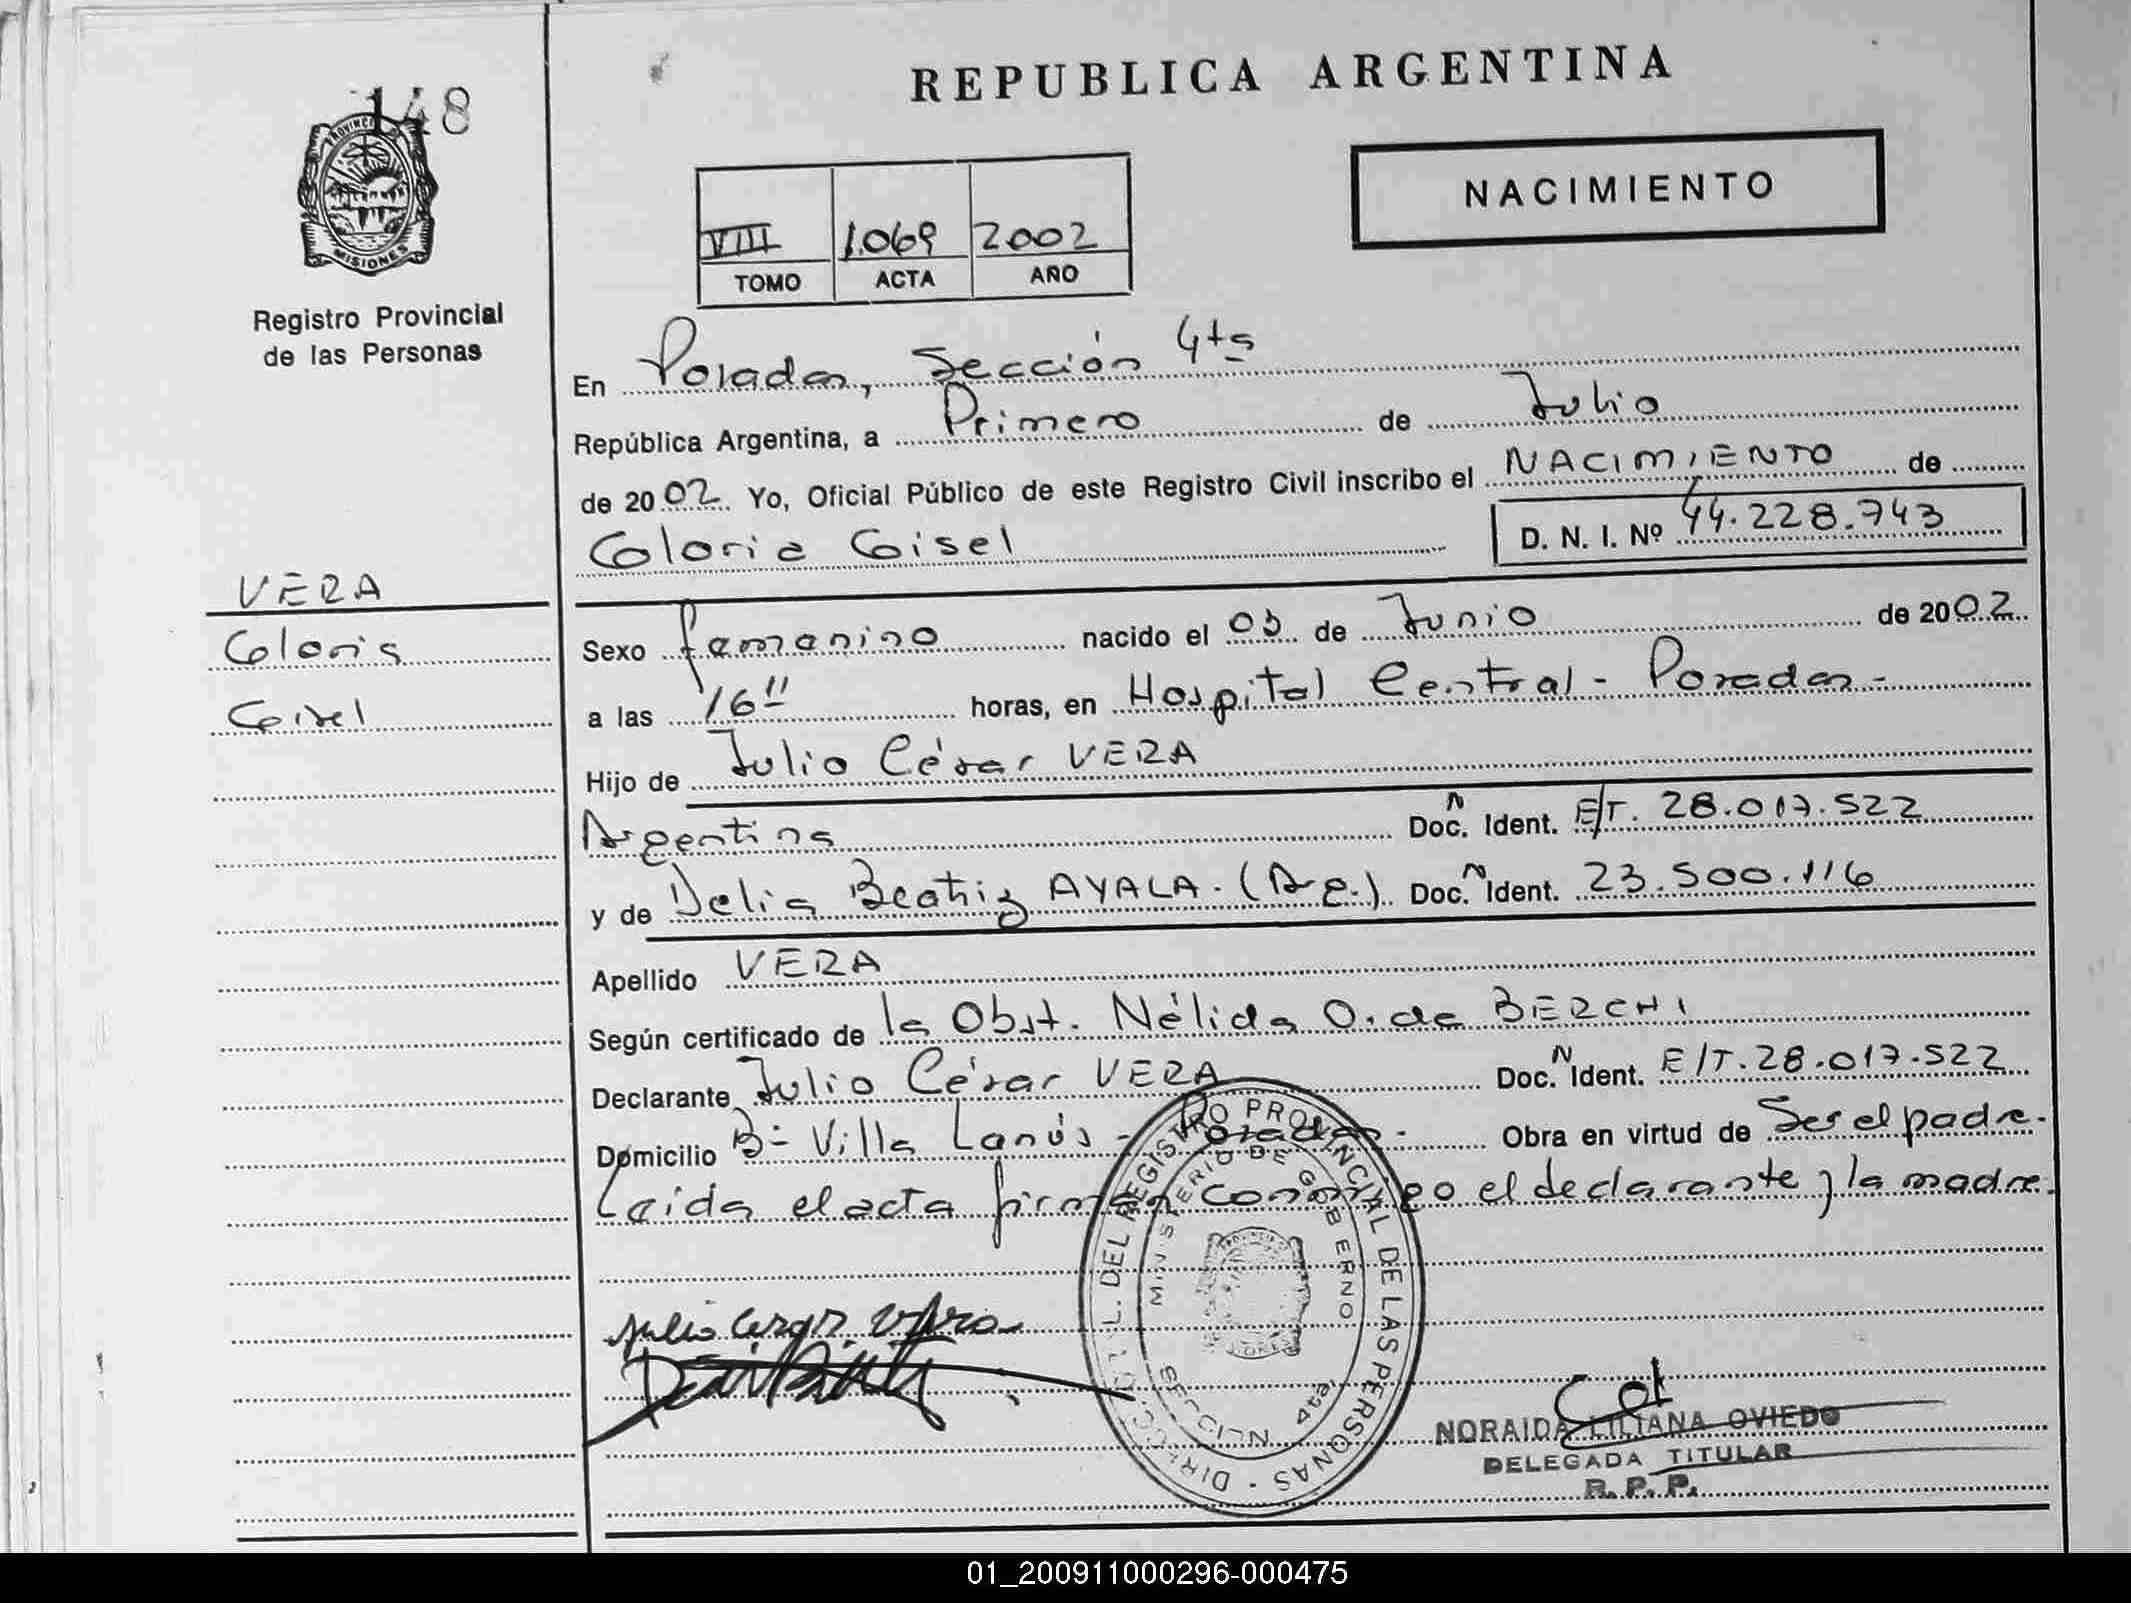 148
REPUBLICA ARGENTINA
NACIMIENTO
VIII 1.069 2002
TOMO ACTA AÑO
PROVINCIA
MISIONES
Registro Provincial
de las Personas
En Posadas, Sección 4ta
República Argentina, a Primero de Julio
de 2002 Yo, Oficial Público de este Registro Civil inscribo el NACIMIENTO de
Gloria Gisel
D. N. I. Nº 44.228.743
VERA
Gloria
Gisel
Sexo femenino nacido el 03 de Junio de 2002
a las 16 horas, en Hospital Central - Posadas -
Hijo de Julio César VERA
Argentina Doc. N Ident. E/T. 28.017.522
y de Delia Beatriz AYALA. (Arg.). Doc. N Ident. 23.500.116
Apellido VERA
Según certificado de la Obst. Nélida O. de BERCHI
Declarante Julio César VERA Doc. N Ident. E/T. 28.017.522
Domicilio Bº Villa Lanús - Posadas - Obra en virtud de Ser el padre.
Leida el acta firman conmigo el declarante y la madre.
DIRECC. GRAL. DEL REGISTRO PROVINCIAL DE LAS PERSONAS
MINISTERIO DE GOBIERNO
SECCION 4ta
Julio Cesar Vera
NORAIDA LILIANA OVIEDO
DELEGADA TITULAR
R. P. P.
01_200911000296-000475